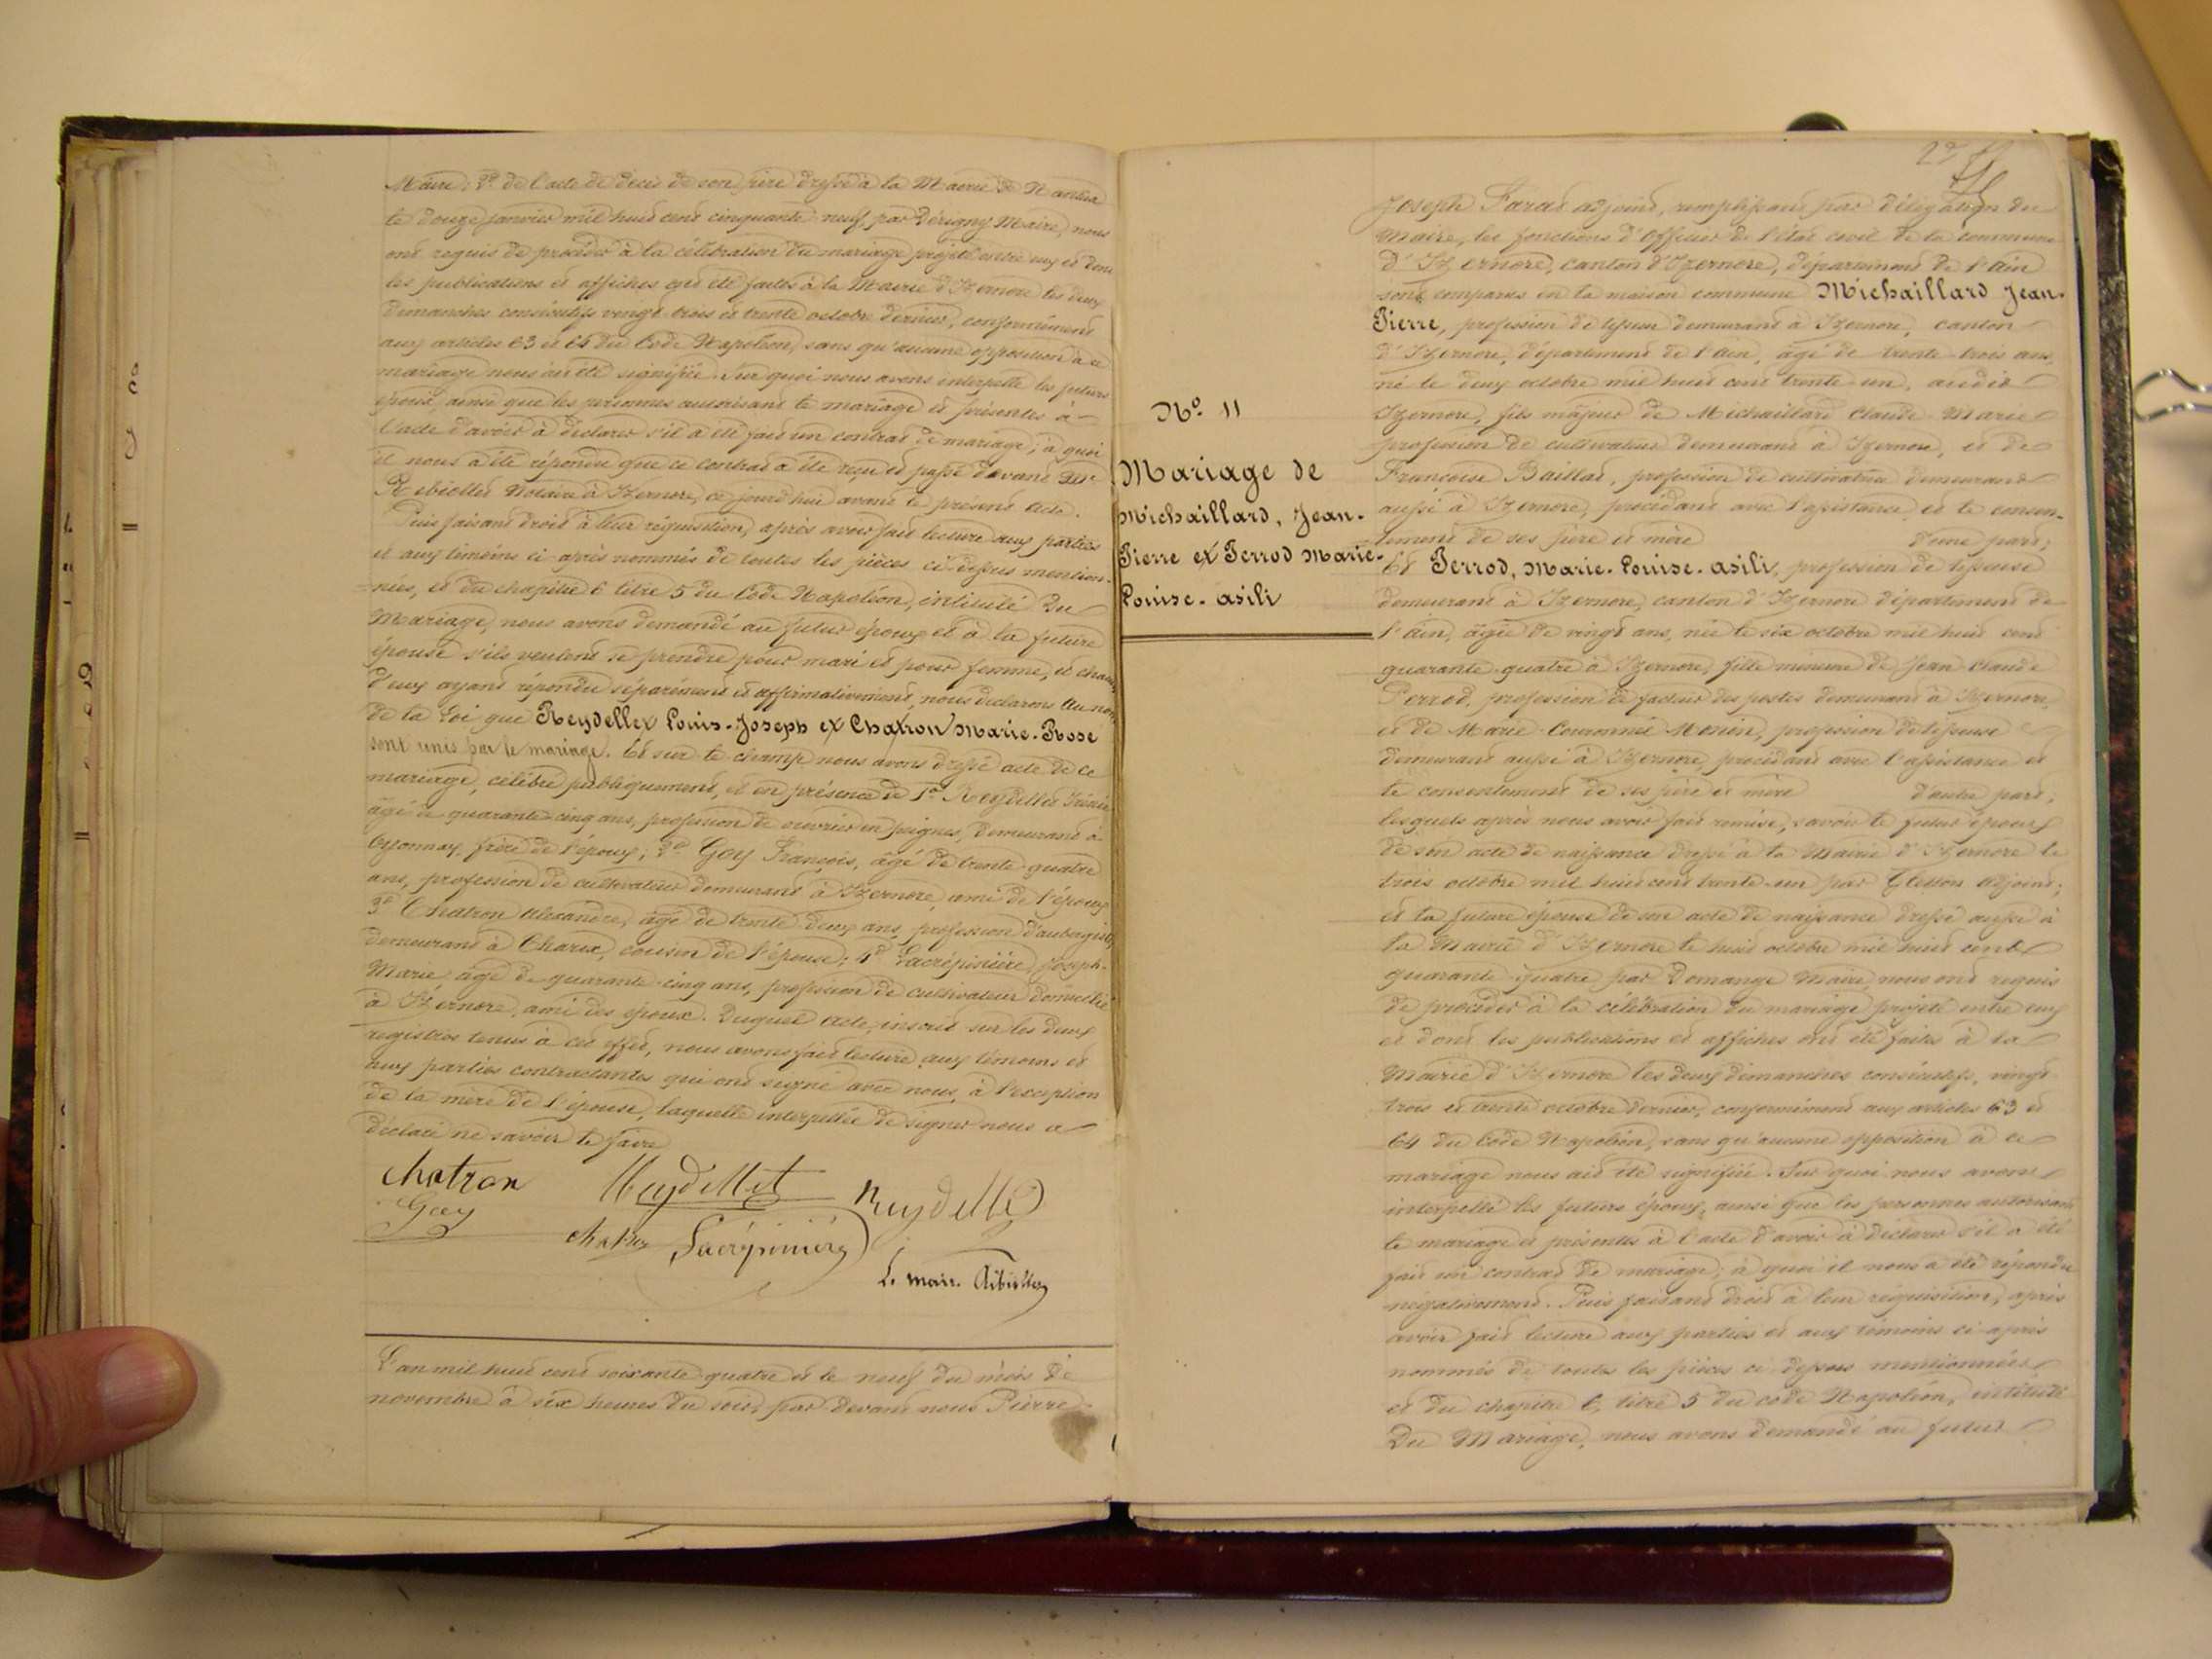 Maire; 2o de l'acte de décès de son père dressé à la Mairie de Nantua
le douze janvier mil huit cent cinquante-neuf, par Dérigny Maire, nous
ont requis de procéder à la célébration du mariage projeté entre eux et dont
les publications et affiches ont été faites à la Mairie d'Izernore les deux
dimanches consécutifs vingt-trois et trente octobre dernier, conformément
aux articles 63 et 64 du Code Napoléon, sans qu'aucune opposition à ce
mariage nous ait été signifiée. Sur quoi nous avons interpellé les futurs
époux, ainsi que les personnes autorisant le mariage et présentes à
l'acte d'avoir à déclarer s'il a été fait un contrat de mariage; à quoi
il nous a été répondu que ce contrat a été reçu et passé devant Me
Ribiollet Notaire à Izernore, ce jourd'hui avant le présent acte.
Puis faisant droit à leur réquisition, après avoir fait lecture aux parties
et aux témoins ci-après nommés de toutes les pièces ci-dessus mention-
=nées, et du chapitre 6 titre 5 du Code Napoléon, intitulé Du
Mariage, nous avons demandé au futur époux et à la future
épouse s'ils veulent se prendre pour mari et pour femme, et chacun
d'eux ayant répondu séparément et affirmativement, nous déclarons au nom
de la Loi que Reydellet Louis-Joseph et Chatron Marie-Rose
sont unis par le mariage. Et sur le champ nous avons dressé acte de ce
mariage, célébré publiquement, et en présence de 1o Reydellet
âgé de quarante-cinq ans, profession de ouvrier en peignes, demeurant à
Oyonnax, frère de l'époux; 2o Goy François, âgé de trente-quatre
ans, profession de cultivateur demeurant à Izernore, ami de l'époux
3o Chatron Alexandre, âgé de trente-deux ans, profession d'aubergiste,
demeurant à Charix, cousin de l'épouse; 4o Lacrépinière, Joseph-
Marie, âgé de quarante-cinq ans, profession de cultivateur domicilié
à Izernore, ami des époux. Duquel acte, inscrit sur les deux
registres tenus à cet effet, nous avons fait lecture aux témoins et
aux parties contractantes qui ont signé avec nous, à l'exception
de la mère de l'épouse, laquelle interpellée de signer nous a
déclaré ne savoir le faire
chatron Reydellet Reydellet
Goy chatron Lacrépinière
Le maire Ribiollet
L'an mil huit cent soixante-quatre et le neuf du mois de
novembre à six heures du soir, par devant nous Pierre-
No 11
Mariage de
Michaillard, Jean-
Pierre et Perrod Marie-
Louise-asili
Joseph adjoint, remplissant par délégation du
Maire, les fonctions d'officier de l'état civil de la commune
d'Izernore, canton d'Izernore, département de l'Ain
sont comparus en la maison commune Michaillard Jean-
Pierre, profession de tisseur demeurant à Izernore, canton
d'Izernore, département de l'Ain, âgé de trente-trois ans,
né le deux octobre mil huit cent trente-un, audit
Izernore, fils majeur de Michaillard Claude-Marie
profession de cultivateur demeurant à Izernore, et de
Françoise Baillat, profession de cultivatrice demeurant
aussi à Izernore, procédant avec l'assistance et le consen-
tement de ses père et mère d'une part;
Et Perrod, Marie-Louise-asili, profession de tisseuse
demeurant à Izernore, canton d'Izernore département de
l'Ain, âgée de vingt ans, née le six octobre mil huit cent
quarante-quatre à Izernore, fille mineure de Jean Claude
Perrod, profession de facteur des postes demeurant à Izernore,
et de Marie Couronné Monin, profession de tisseuse
demeurant aussi à Izernore, procédant avec l'assistance et
le consentement de ses père et mère d'autre part,
lesquels après nous avoir fait remise, savoir le futur époux
de son acte de naissance dressé à la Mairie d'Izernore le
trois octobre mil huit cent trente-un par Gletton adjoint;
et la future épouse de son acte de naissance dressé aussi à
la Mairie d'Izernore le huit octobre mil huit cent
quarante-quatre par Domange Maire, nous ont requis
de procéder à la célébration du mariage projeté entre eux
et dont les publications et affiches ont été faites à la
Mairie d'Izernore les deux dimanches consécutifs, vingt
trois et trente octobre dernier, conformément aux articles 63 et
64 du Code Napoléon, sans qu'aucune opposition à ce
mariage nous ait été signifiée. Sur quoi nous avons
interpellé les futurs époux, ainsi que les personnes autorisant
le mariage et présentes à l'acte d'avoir à déclarer s'il a été
fait un contrat de mariage; à quoi il nous a été répondu
négativement. Puis faisant droit à leur réquisition, après
avoir fait lecture aux parties et aux témoins ci-après
nommés de toutes les pièces ci-dessus mentionnées
et du chapitre 6, titre 5 du code Napoléon, intitulé
Du Mariage, nous avons demandé au futur